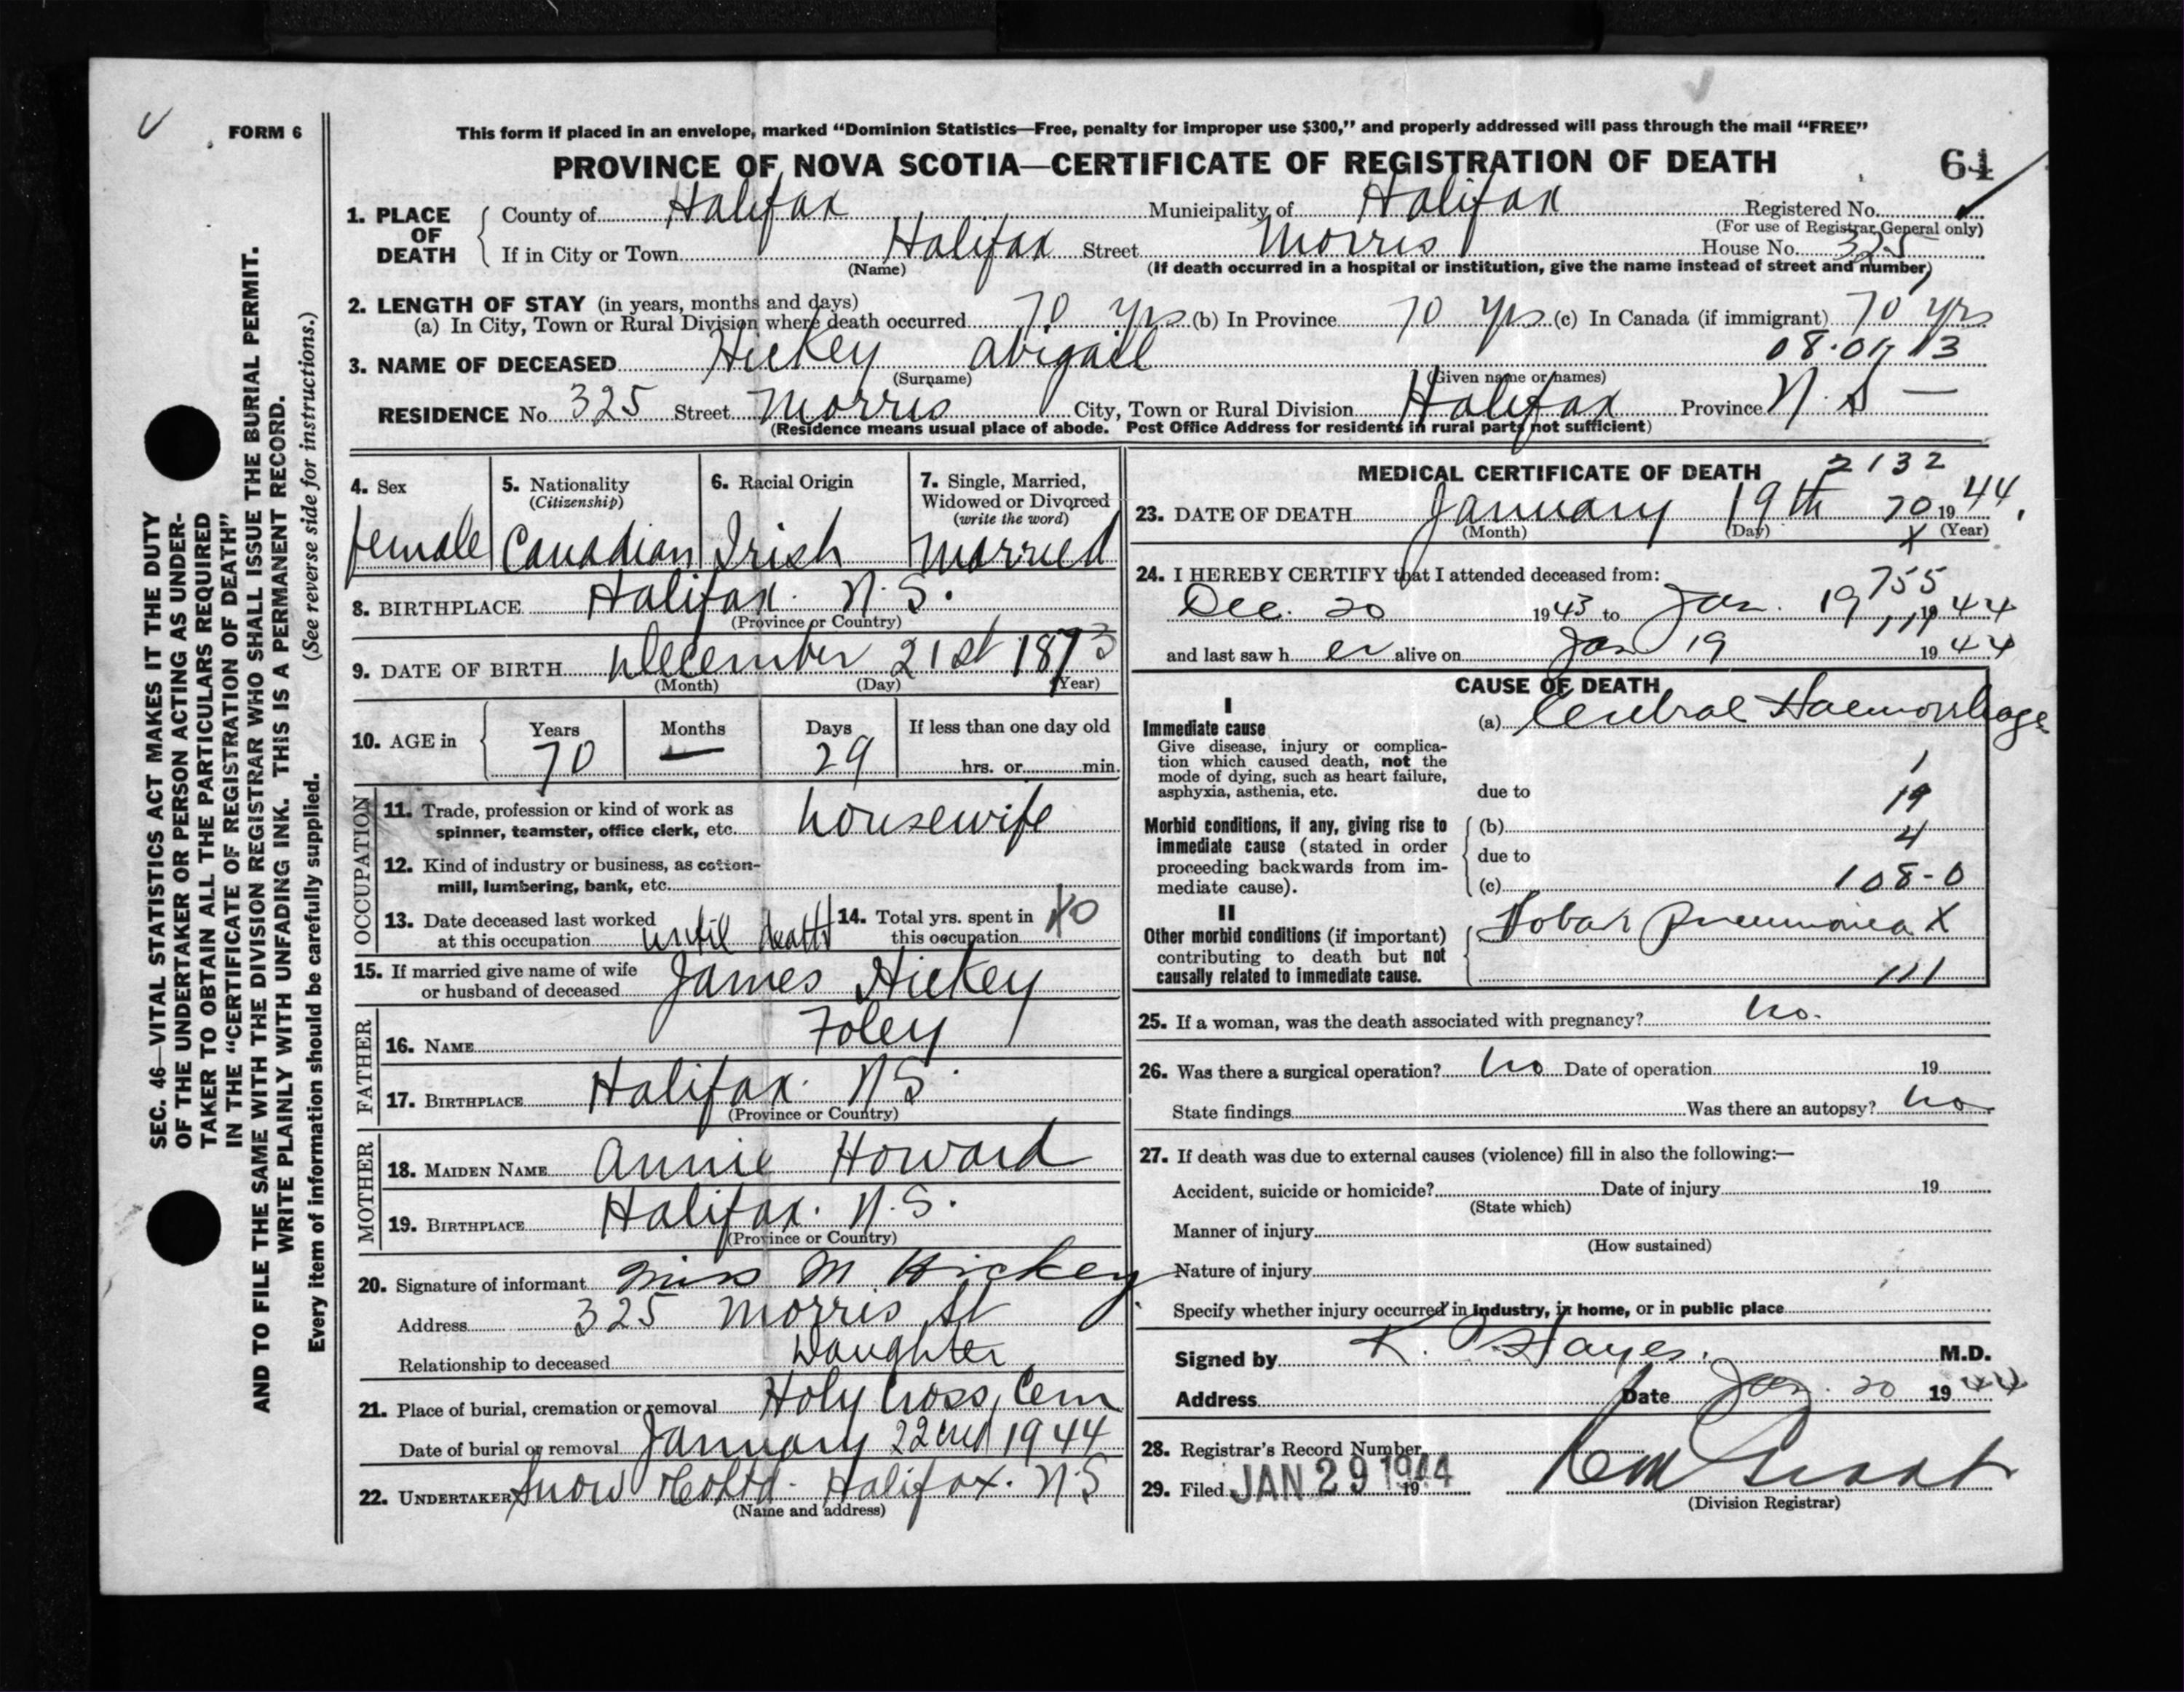 FORM 6
This form if placed in an envelope, marked “Dominion Statistics—Free, penalty for improper use $300,” and properly addressed will pass through the mail “FREE”
PROVINCE OF NOVA SCOTIA—CERTIFICATE OF REGISTRATION OF DEATH
64
1. PLACE OF DEATH
County of Halifax Municipality of Halifax Registered No.
(For use of Registrar General only)
If in City or Town Halifax Street Morris House No. 325
(Name) (If death occurred in a hospital or institution, give the name instead of street and number)
2. LENGTH OF STAY (in years, months and days)
(a) In City, Town or Rural Division where death occurred 70 yrs (b) In Province 70 yrs (c) In Canada (if immigrant) 70 yrs
3. NAME OF DECEASED Hickey Abigail
(Surname) (Given name or names)
RESIDENCE No. 325 Street Morris City, Town or Rural Division Halifax Province N.S —
(Residence means usual place of abode. Post Office Address for residents in rural parts not sufficient)
4. Sex
female
5. Nationality
(Citizenship)
Canadian
6. Racial Origin
Irish
7. Single, Married,
Widowed or Divorced
(write the word)
Married
8. BIRTHPLACE Halifax. N.S.
(Province or Country)
9. DATE OF BIRTH December 21st 1873
(Month) (Day) (Year)
10. AGE in
Years Months Days If less than one day old
70 — 29 hrs. or min.
OCCUPATION
11. Trade, profession or kind of work as
spinner, teamster, office clerk, etc. housewife
12. Kind of industry or business, as cotton-
mill, lumbering, bank, etc.
13. Date deceased last worked
at this occupation until death
14. Total yrs. spent in
this occupation
15. If married give name of wife
or husband of deceased James Hickey
FATHER
16. NAME Foley
17. BIRTHPLACE Halifax. N.S.
(Province or Country)
MOTHER
18. MAIDEN NAME Annie Howard
19. BIRTHPLACE Halifax. N.S.
(Province or Country)
20. Signature of informant Miss M Hickey
Address 325 Morris St
Relationship to deceased Daughter
21. Place of burial, cremation or removal Holy Cross Cem
Date of burial or removal January 22nd 1944
22. UNDERTAKER Snow & Co Ltd. Halifax. N.S
(Name and address)
MEDICAL CERTIFICATE OF DEATH 2132
23. DATE OF DEATH January 19th 70 1944.
(Month) (Day) X (Year)
24. I HEREBY CERTIFY that I attended deceased from:
755
Dec. 20 1943 to Jan. 19 1944
111
and last saw h er alive on Jan 19 1944
CAUSE OF DEATH
I
Immediate cause
Give disease, injury or complica-
tion which caused death, not the
mode of dying, such as heart failure,
asphyxia, asthenia, etc.
(a) Cerebral Haemorrhage
1
due to 19
Morbid conditions, if any, giving rise to
immediate cause (stated in order
proceeding backwards from im-
mediate cause).
(b) 4
due to
(c) 108-0
II
Other morbid conditions (if important)
contributing to death but not
causally related to immediate cause.
Lobar pneumonia X
111
25. If a woman, was the death associated with pregnancy? no.
26. Was there a surgical operation? no Date of operation 19
State findings Was there an autopsy? no
27. If death was due to external causes (violence) fill in also the following:—
Accident, suicide or homicide? Date of injury 19
(State which)
Manner of injury
(How sustained)
Nature of injury
Specify whether injury occurred in industry, in home, or in public place
Signed by K. P. Hayes. M.D.
Address Date Jan. 20 1944
28. Registrar's Record Number
29. Filed JAN 29 1944 19
(Division Registrar)
SEC. 46—VITAL STATISTICS ACT MAKES IT THE DUTY
OF THE UNDERTAKER OR PERSON ACTING AS UNDER-
TAKER TO OBTAIN ALL THE PARTICULARS REQUIRED
IN THE “CERTIFICATE OF REGISTRATION OF DEATH”
AND TO FILE THE SAME WITH THE DIVISION REGISTRAR WHO SHALL ISSUE THE BURIAL PERMIT.
WRITE PLAINLY WITH UNFADING INK. THIS IS A PERMANENT RECORD.
Every item of information should be carefully supplied. (See reverse side for instructions.)